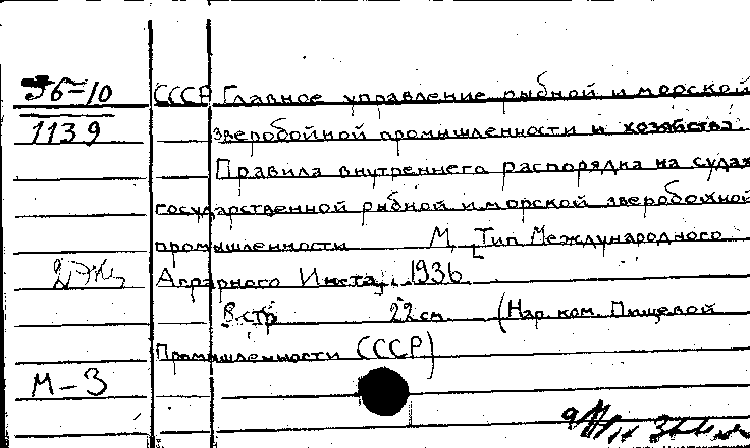 36-10 СССР Главное управление рыбной и морской
1139 зверобойной промышленности и хозяйства.
Правила внутреннего распорядка на судах
государственной рыбной и морской зверобойной
промышленности М, [Тип Международного
Аграрного Инста], 1936
8 стр 22 см. (Нар. ком. Пищевой
Промышленности СССР)
М-3